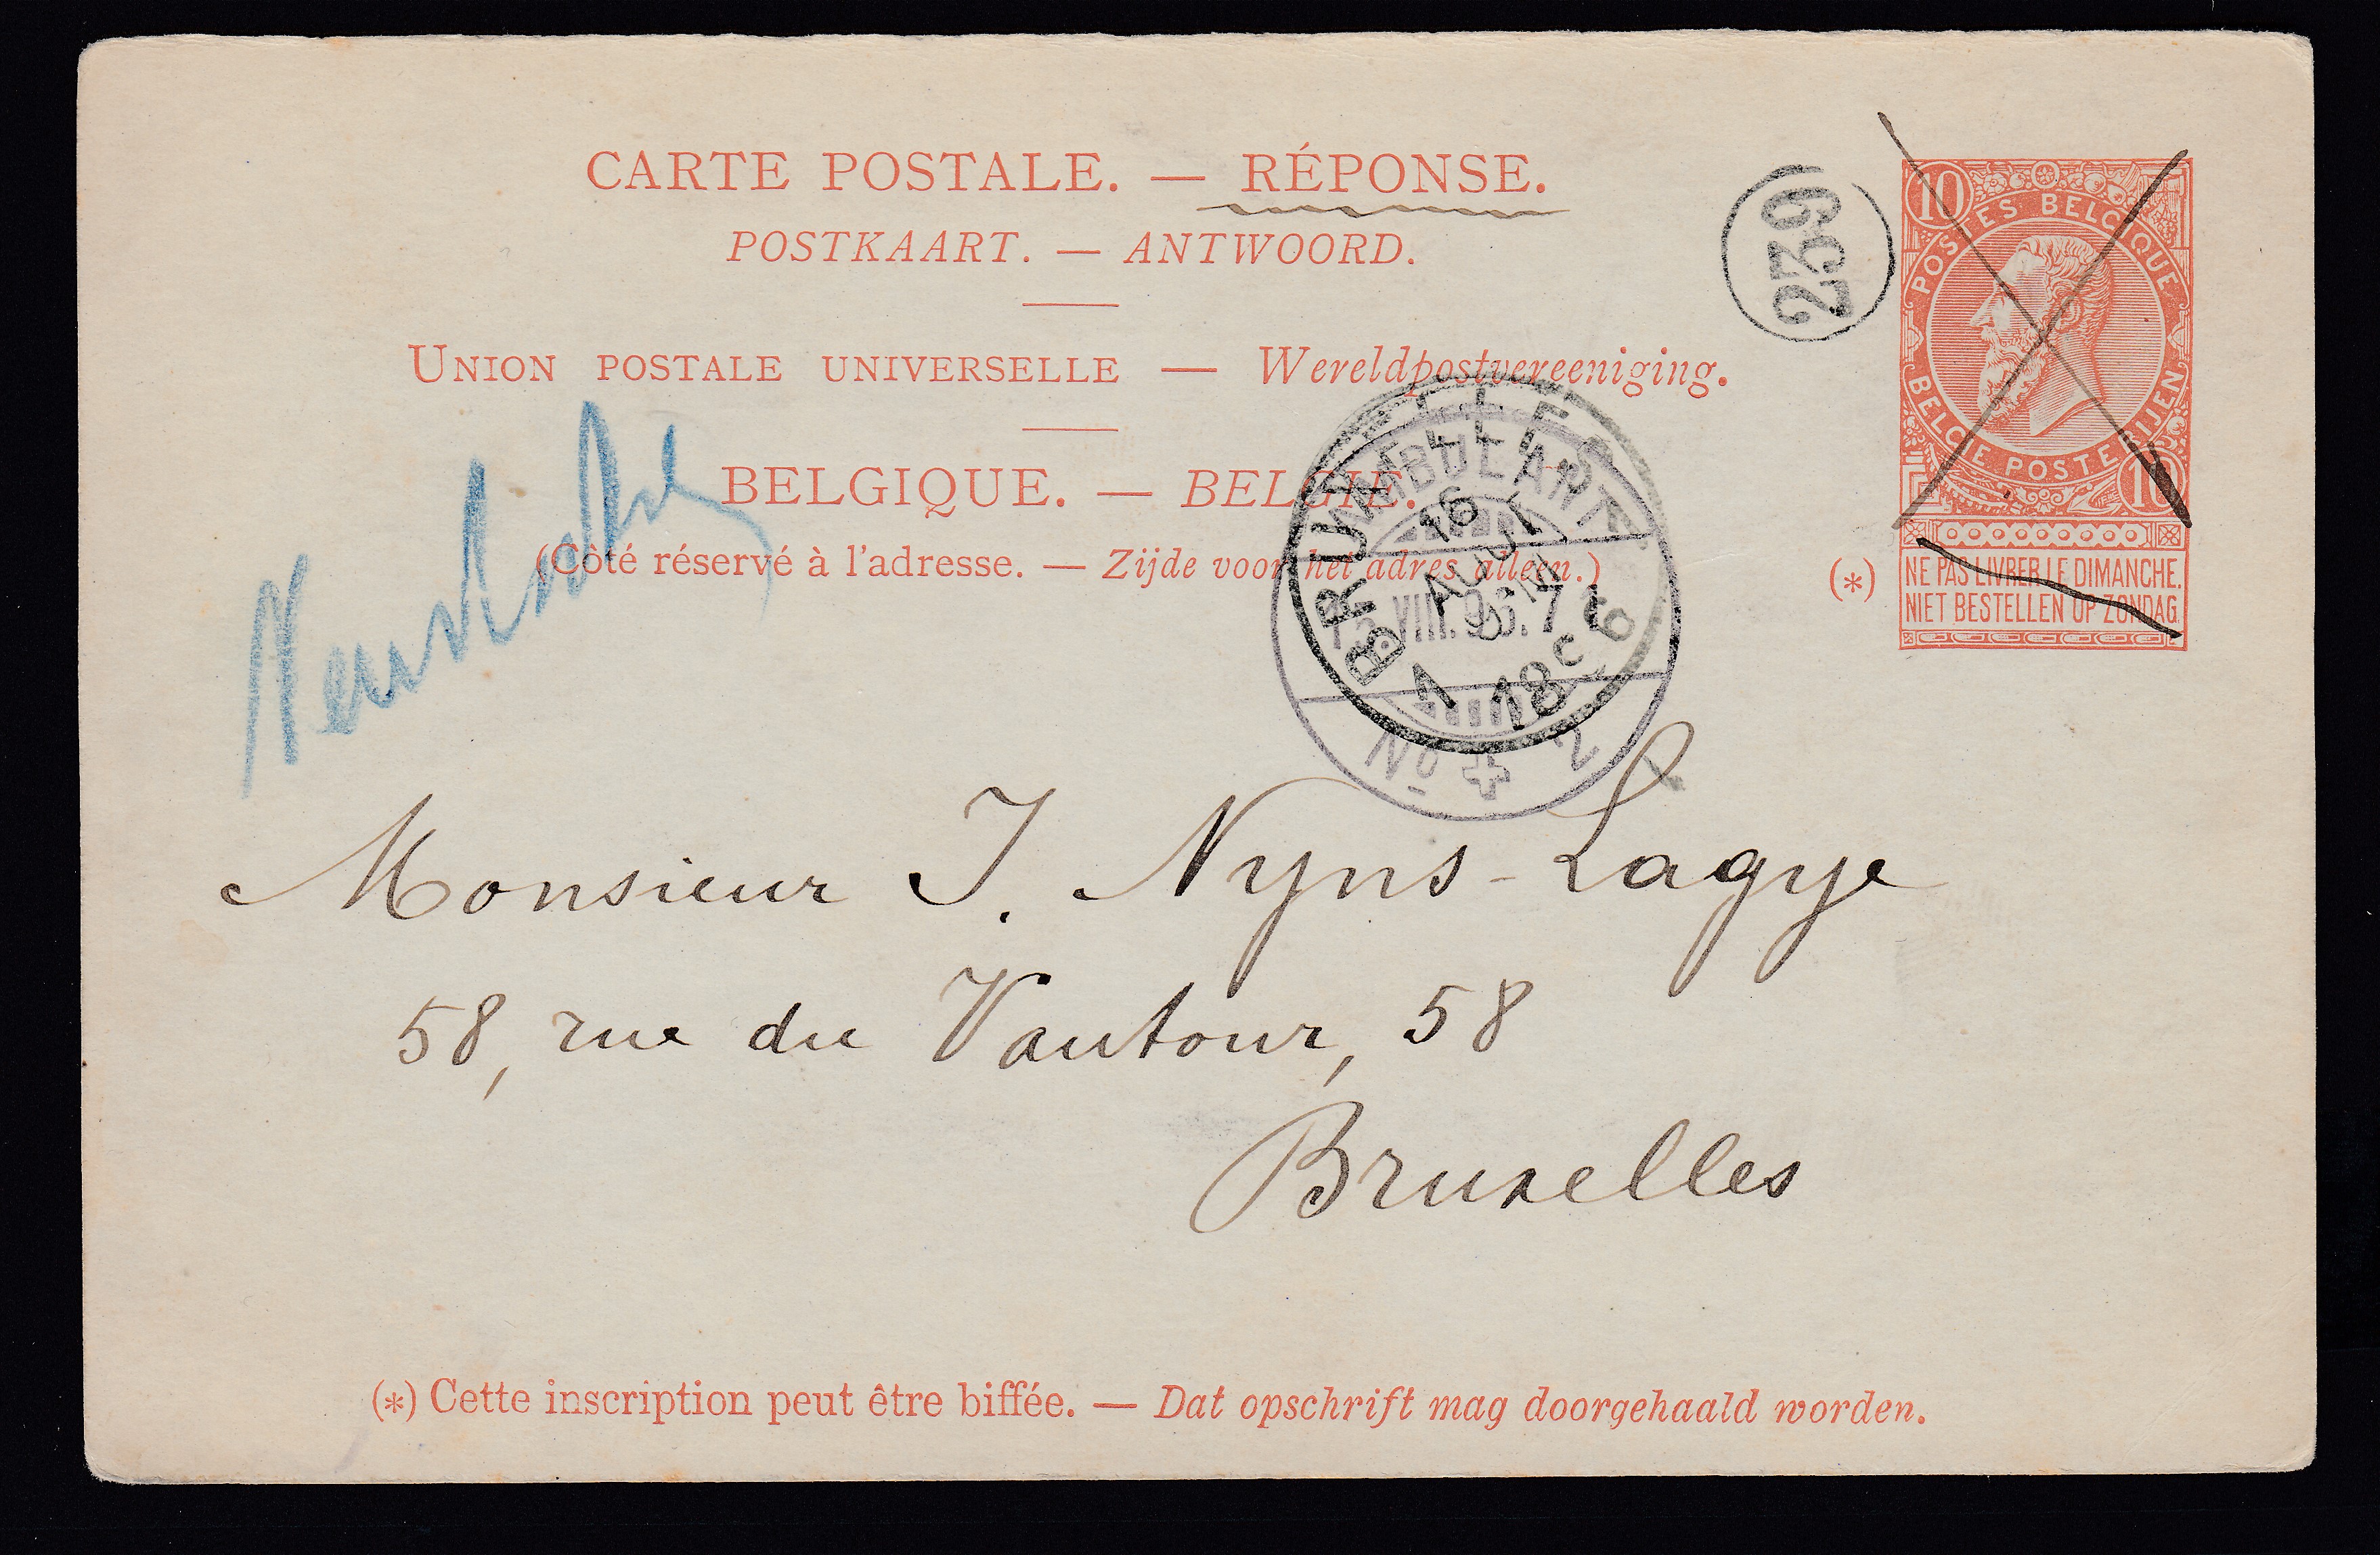 CARTE POSTALE. — RÉPONSE.
POSTKAART. — ANTWOORD.
UNION POSTALE UNIVERSELLE — Wereldpostvereeniging.
BELGIQUE. — BELGIË.
(Côté réservé à l'adresse. — Zijde voor het adres alleen.)
10
POSTES BELGIQUE
BELGIE POSTERIJEN
10
(*)
NE PAS LIVRER LE DIMANCHE.
NIET BESTELLEN OP ZONDAG.
259
BRUXELLES
16
AOUT
AMBULANT
VIII.96.
No 2
Monsieur J. Nyns-Lagye
58, rue du Vautour, 58
Bruxelles
(*) Cette inscription peut être biffée. — Dat opschrift mag doorgehaald worden.